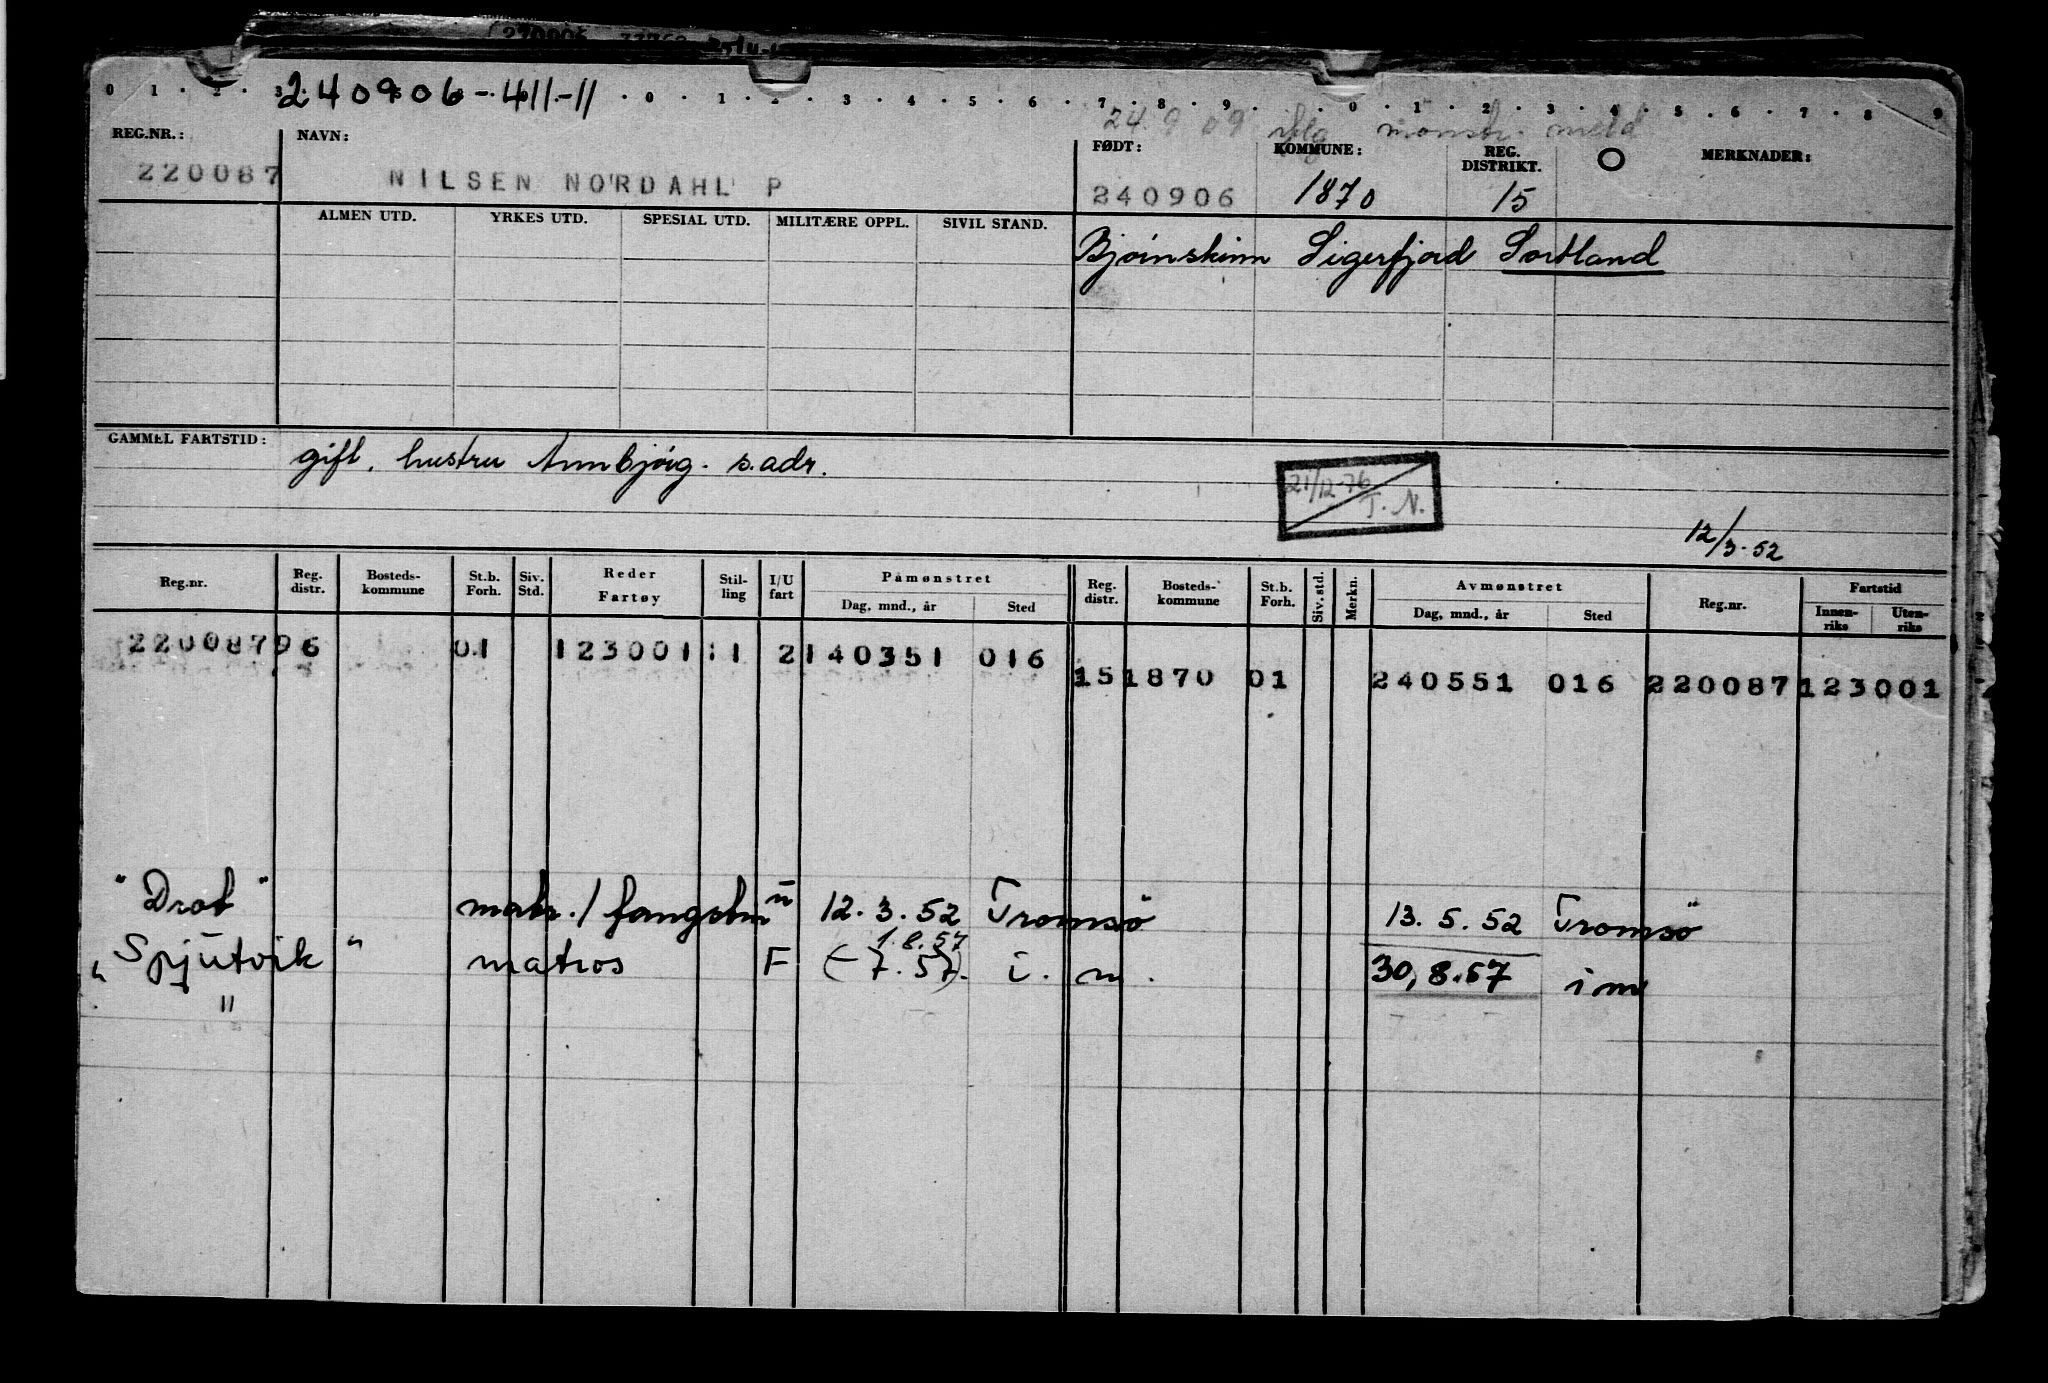 240906-411-11
0 1 2 3 0 1 2 3 4 5 6 7 8 9 0 1 2 3 4 5 6 7 8 9
24.9 09 iflg mønstr. meld
REG.NR.: NAVN: FØDT: KOMMUNE: REG. DISTRIKT. O MERKNADER:
220087 NILSEN NORDAHL P 240906 1870 15
ALMEN UTD. YRKES UTD. SPESIAL UTD. MILITÆRE OPPL. SIVIL STAND.
Sigerfjord Sortland
GAMMEL FARTSTID: gift, hustru Annbjørg. s.adr.
21/12-76 T.N.
12/3-52
Reg.nr. Reg. distr. Bosteds-kommune St.b. Forh. Siv. Std. Reder Fartøy Stil-ling I/U fart Påmønstret Dag, mnd., år Sted Reg. distr. Bosteds-kommune St.b. Forh. Siv. std. Merkn. Avmønstret Dag, mnd., år Sted Reg.nr. Fartstid Innen-riks Uten-riks
220087 96 01 123001 11 2 140351 016
15 1870 01 240551 016 220087 123001
"Drot" matr./fangstm u 12.3.52 Tromsø 13.5.52 Tromsø
1.8.57
"Spjutvik" matros F (-7.57). i. m. 30,8.57 i m
"